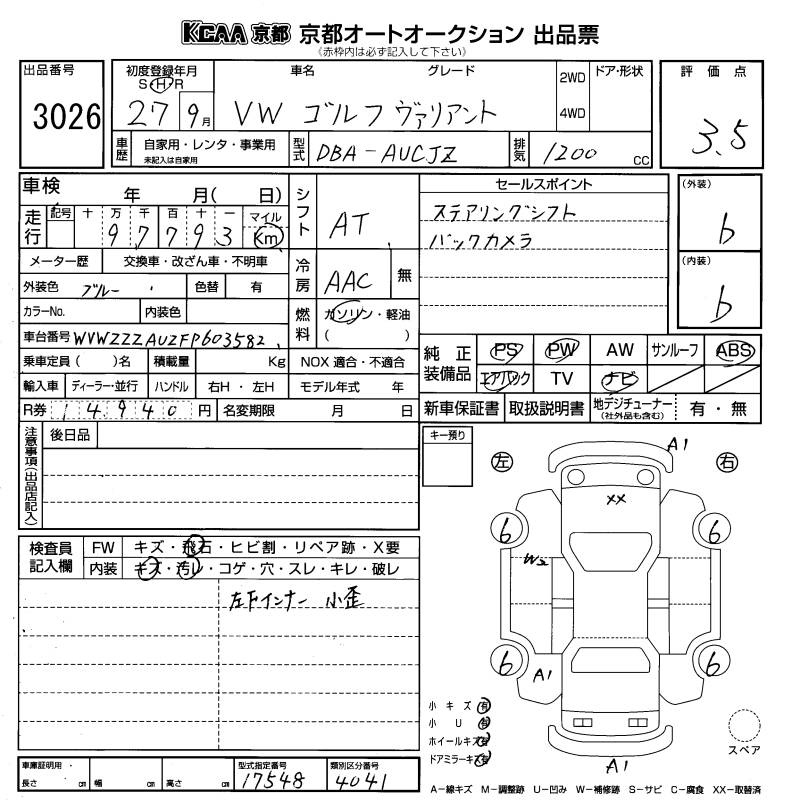 KCAA 京都 京都オートオークション 出品票
(赤枠内は必ず記入して下さい)
出品番号 初度登録年月 車名 グレード 2WD ドア・形状 評価点
S H R
3026 27 9月 VW ゴルフ ヴァリアント 4WD 3.5
車歴 自家用・レンタ・事業用 型式 DBA-AUCJZ 排気 1200 CC
未記入は自家用
車検 年 月( 日) シフト AT セールスポイント (外装)
走行 記号 十 万 千 百 十 一 マイル ステアリングシフト b
9 7 7 9 3 Km バックカメラ
メーター歴 交換車・改ざん車・不明車 冷房 AAC 無 (内装)
外装色 ブルー 色替 有 b
カラーNo. 内装色 燃料 ガソリン・軽油
( )
車台番号 WVWZZZAUZFP603582
乗車定員( )名 積載量 Kg NOX 適合・不適合 純正装備品 PS PW AW サンルーフ ABS
輸入車 ディーラー・並行 ハンドル 右H・左H モデル年式 年 エアバック TV ナビ
R券 14940円 名変期限 月 日 新車保証書 取扱説明書 地デジチューナー 有・無
(社外品も含む)
注意事項(出品店記入) 後日品 キー預り
左 右
A1
XX
6 6
W2
検査員記入欄 FW キズ・飛石・ヒビ割・リペア跡・X要
内装 キズ・汚れ・コゲ・穴・スレ・キレ・破レ
左Fインナー 小歪
6 6
A1
小キズ 有
小U 有
ホイールキズ 有
ドアミラーキズ 有
スペア
A1
車庫証明用・長さ cm 幅 cm 高さ cm 型式指定番号 17548 類別区分番号 4041
A-線キズ M-調整跡 U-凹み W-補修跡 S-サビ C-腐食 XX-取替済